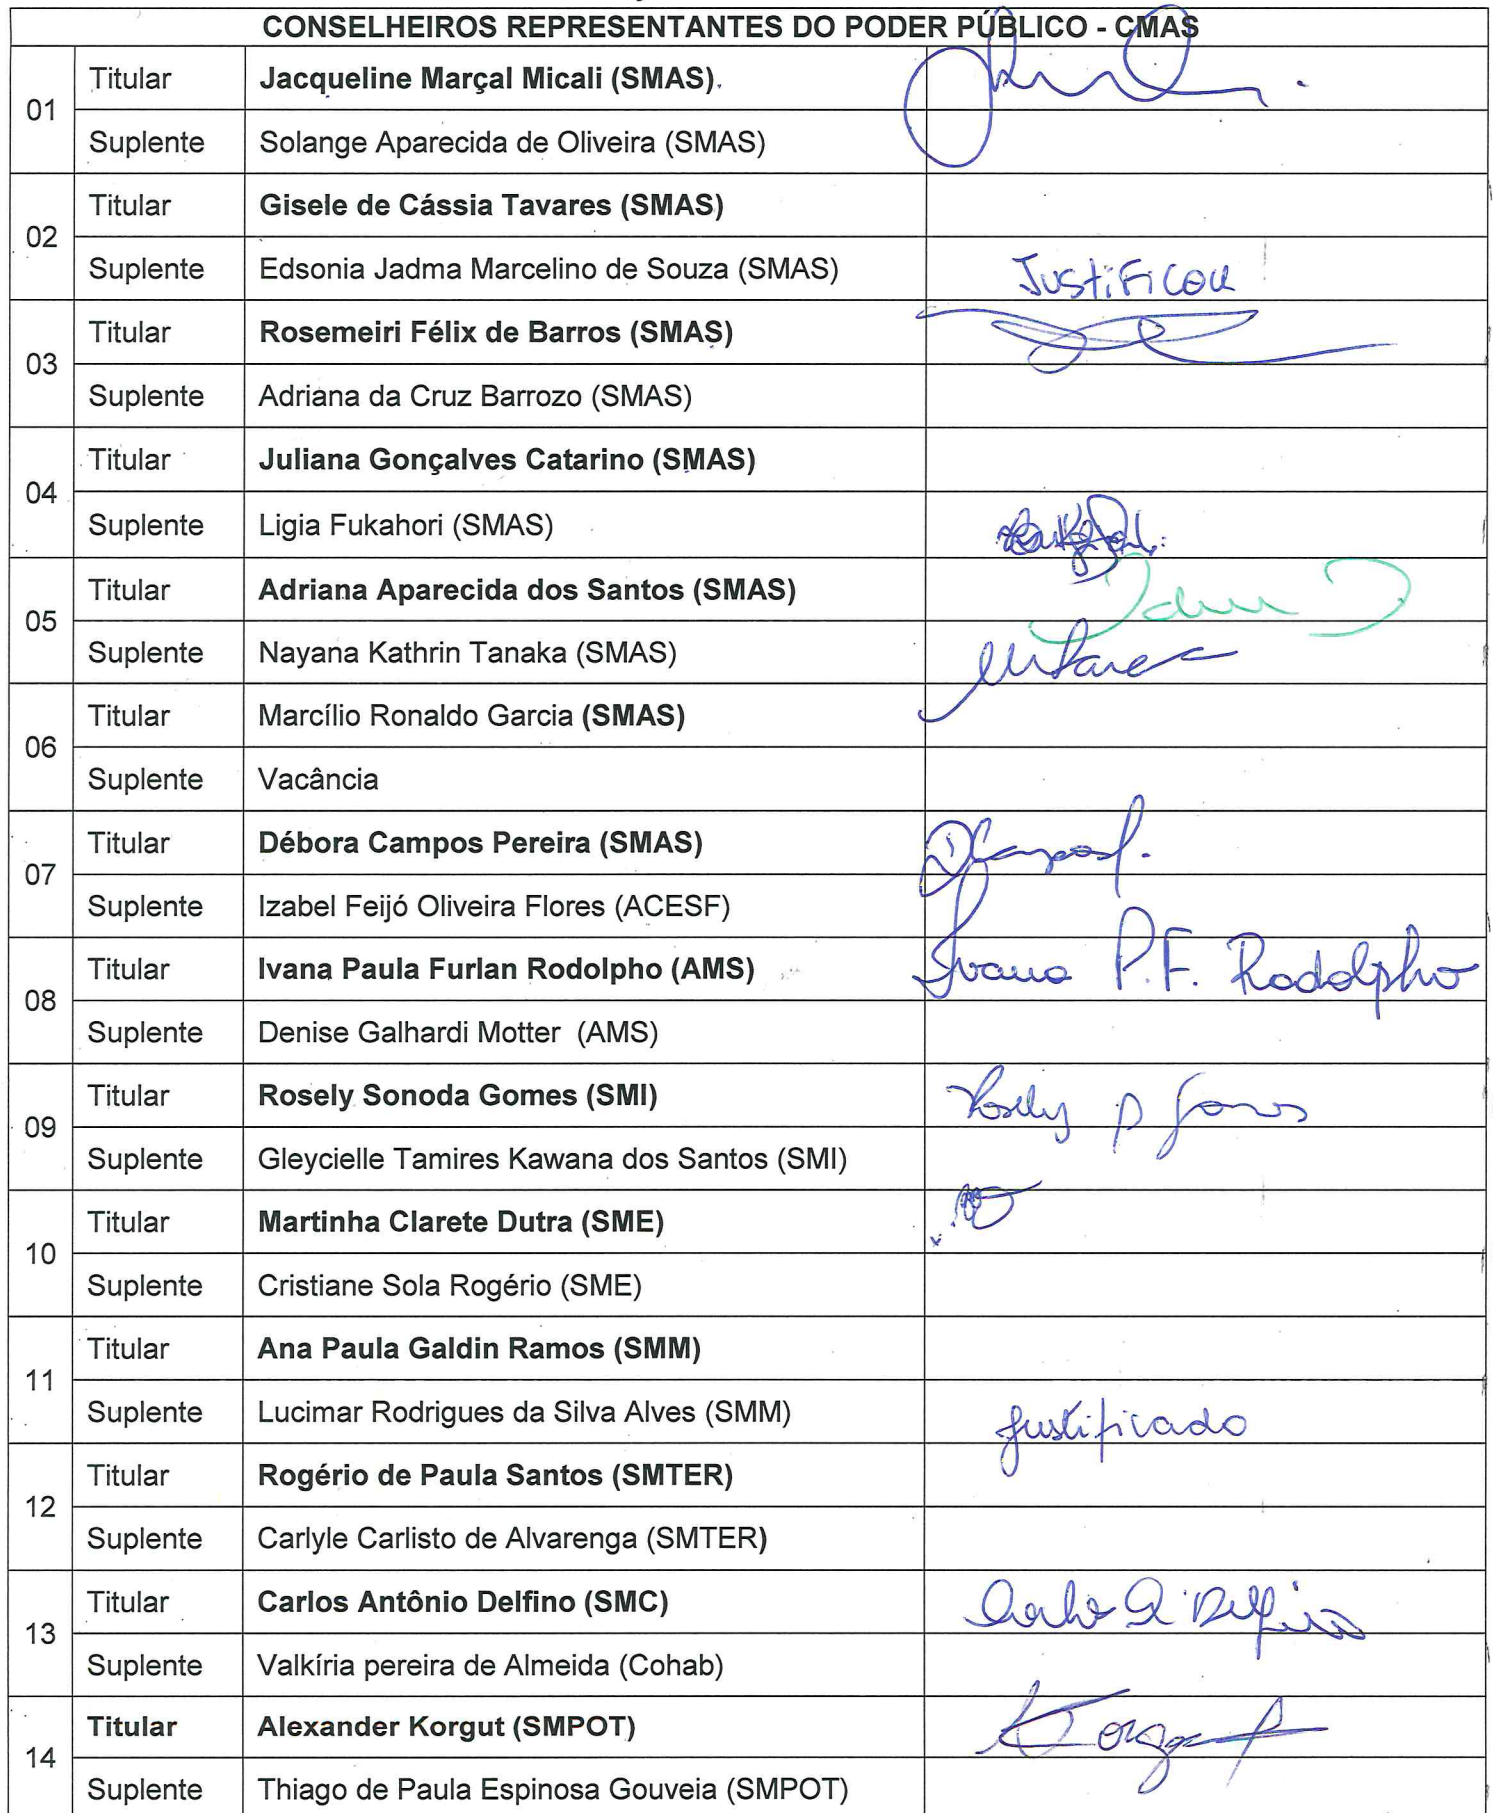 CONSELHEIROS REPRESENTANTES DO PODER PÚBLICO - CMAS
01
Titular Jacqueline Marçal Micali (SMAS).
Suplente Solange Aparecida de Oliveira (SMAS)
02
Titular Gisele de Cássia Tavares (SMAS)
Suplente Edsonia Jadma Marcelino de Souza (SMAS) Justificou
03
Titular Rosemeiri Félix de Barros (SMAS)
Suplente Adriana da Cruz Barrozo (SMAS)
04
Titular Juliana Gonçalves Catarino (SMAS)
Suplente Ligia Fukahori (SMAS)
05
Titular Adriana Aparecida dos Santos (SMAS)
Suplente Nayana Kathrin Tanaka (SMAS)
06
Titular Marcílio Ronaldo Garcia (SMAS)
Suplente Vacância
07
Titular Débora Campos Pereira (SMAS)
Suplente Izabel Feijó Oliveira Flores (ACESF)
08
Titular Ivana Paula Furlan Rodolpho (AMS) Ivana P.F. Rodolpho
Suplente Denise Galhardi Motter (AMS)
09
Titular Rosely Sonoda Gomes (SMI) Rosely
Suplente Gleycielle Tamires Kawana dos Santos (SMI)
10
Titular Martinha Clarete Dutra (SME)
Suplente Cristiane Sola Rogério (SME)
11
Titular Ana Paula Galdin Ramos (SMM)
Suplente Lucimar Rodrigues da Silva Alves (SMM) justificado
12
Titular Rogério de Paula Santos (SMTER)
Suplente Carlyle Carlisto de Alvarenga (SMTER)
13
Titular Carlos Antônio Delfino (SMC) Carlos A Delfino
Suplente Valkíria pereira de Almeida (Cohab)
14
Titular Alexander Korgut (SMPOT)
Suplente Thiago de Paula Espinosa Gouveia (SMPOT)